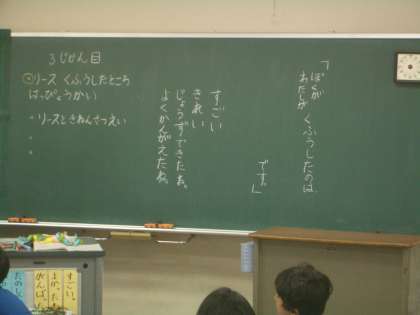 3じかん目
リース くふうしたところ
はっぴょうかい
・リースときねんさつえい
・
・
「ぼくが
わたしが くふうしたのは、
です。」
すごい
きれい
じょうずにできたね。
よくかんがえたね。
すごい。